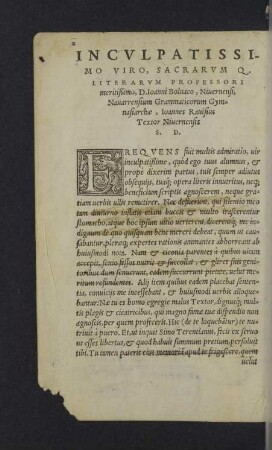 INCVLPATISSI-
MO VIRO, SACRARVM Q.
LITERARVM PROFESSORI
meritissimo, D. Ioanni Bolnaco, Niuernensi,
Nauarrensium Grammaticorum Gym-
nasiarchæ, Ioannes Rauisius
Textor Niuernensis
S. D.
FREQVENS fuit multis admiratio, uir
inculpatissime, quòd ego tuus alumnus, &
propè dixerim partus, tuis semper adiutus
obsequijs, tuáq; opera liberè innutritus, neq;
beneficium scriptis agnoscerem, neque gra-
tiam uerbis ullis remitterer. Nec defuerunt, qui silentio meo
tam diuturno inflatis etiam buccis & multo trasferentur
stomacho, atque hoc ipsum uitio uerterent, &
dignum de quo quisquam bene mereri debeat, quum ut cau-
sabantur, pleraq; expertes rationis animantes abhorreant ab
huiusmodi nota. Nam & ciconia parentes à quibus uitam
accepit, senio fessos nutrit & succollat, & glires suis geni-
toribus dum senuerunt, eadem succurrunt pietate, uelut me-
ritum refundentes. Alij item quibus eadem placebat senten-
tia, conuicijs me incessebant, & huiusmodi uerbis alloque-
bantur: Næ tu es homo egregiè malus Textor, dignusq; mul-
tis plagis & cicatricibus, qui magno famæ tuæ dispendio non
agnoscis, per quem profeceris. Hic (de te loquebatur) te nu-
triuit à puero. Et, ut inquit Simo Terentianus, fecit ex seruo
ut esses libertus, & quod habuit summum pretium, persoluit
tibi. Tu tamen pateris eius memoriã apud te frigescere, quem
uelut